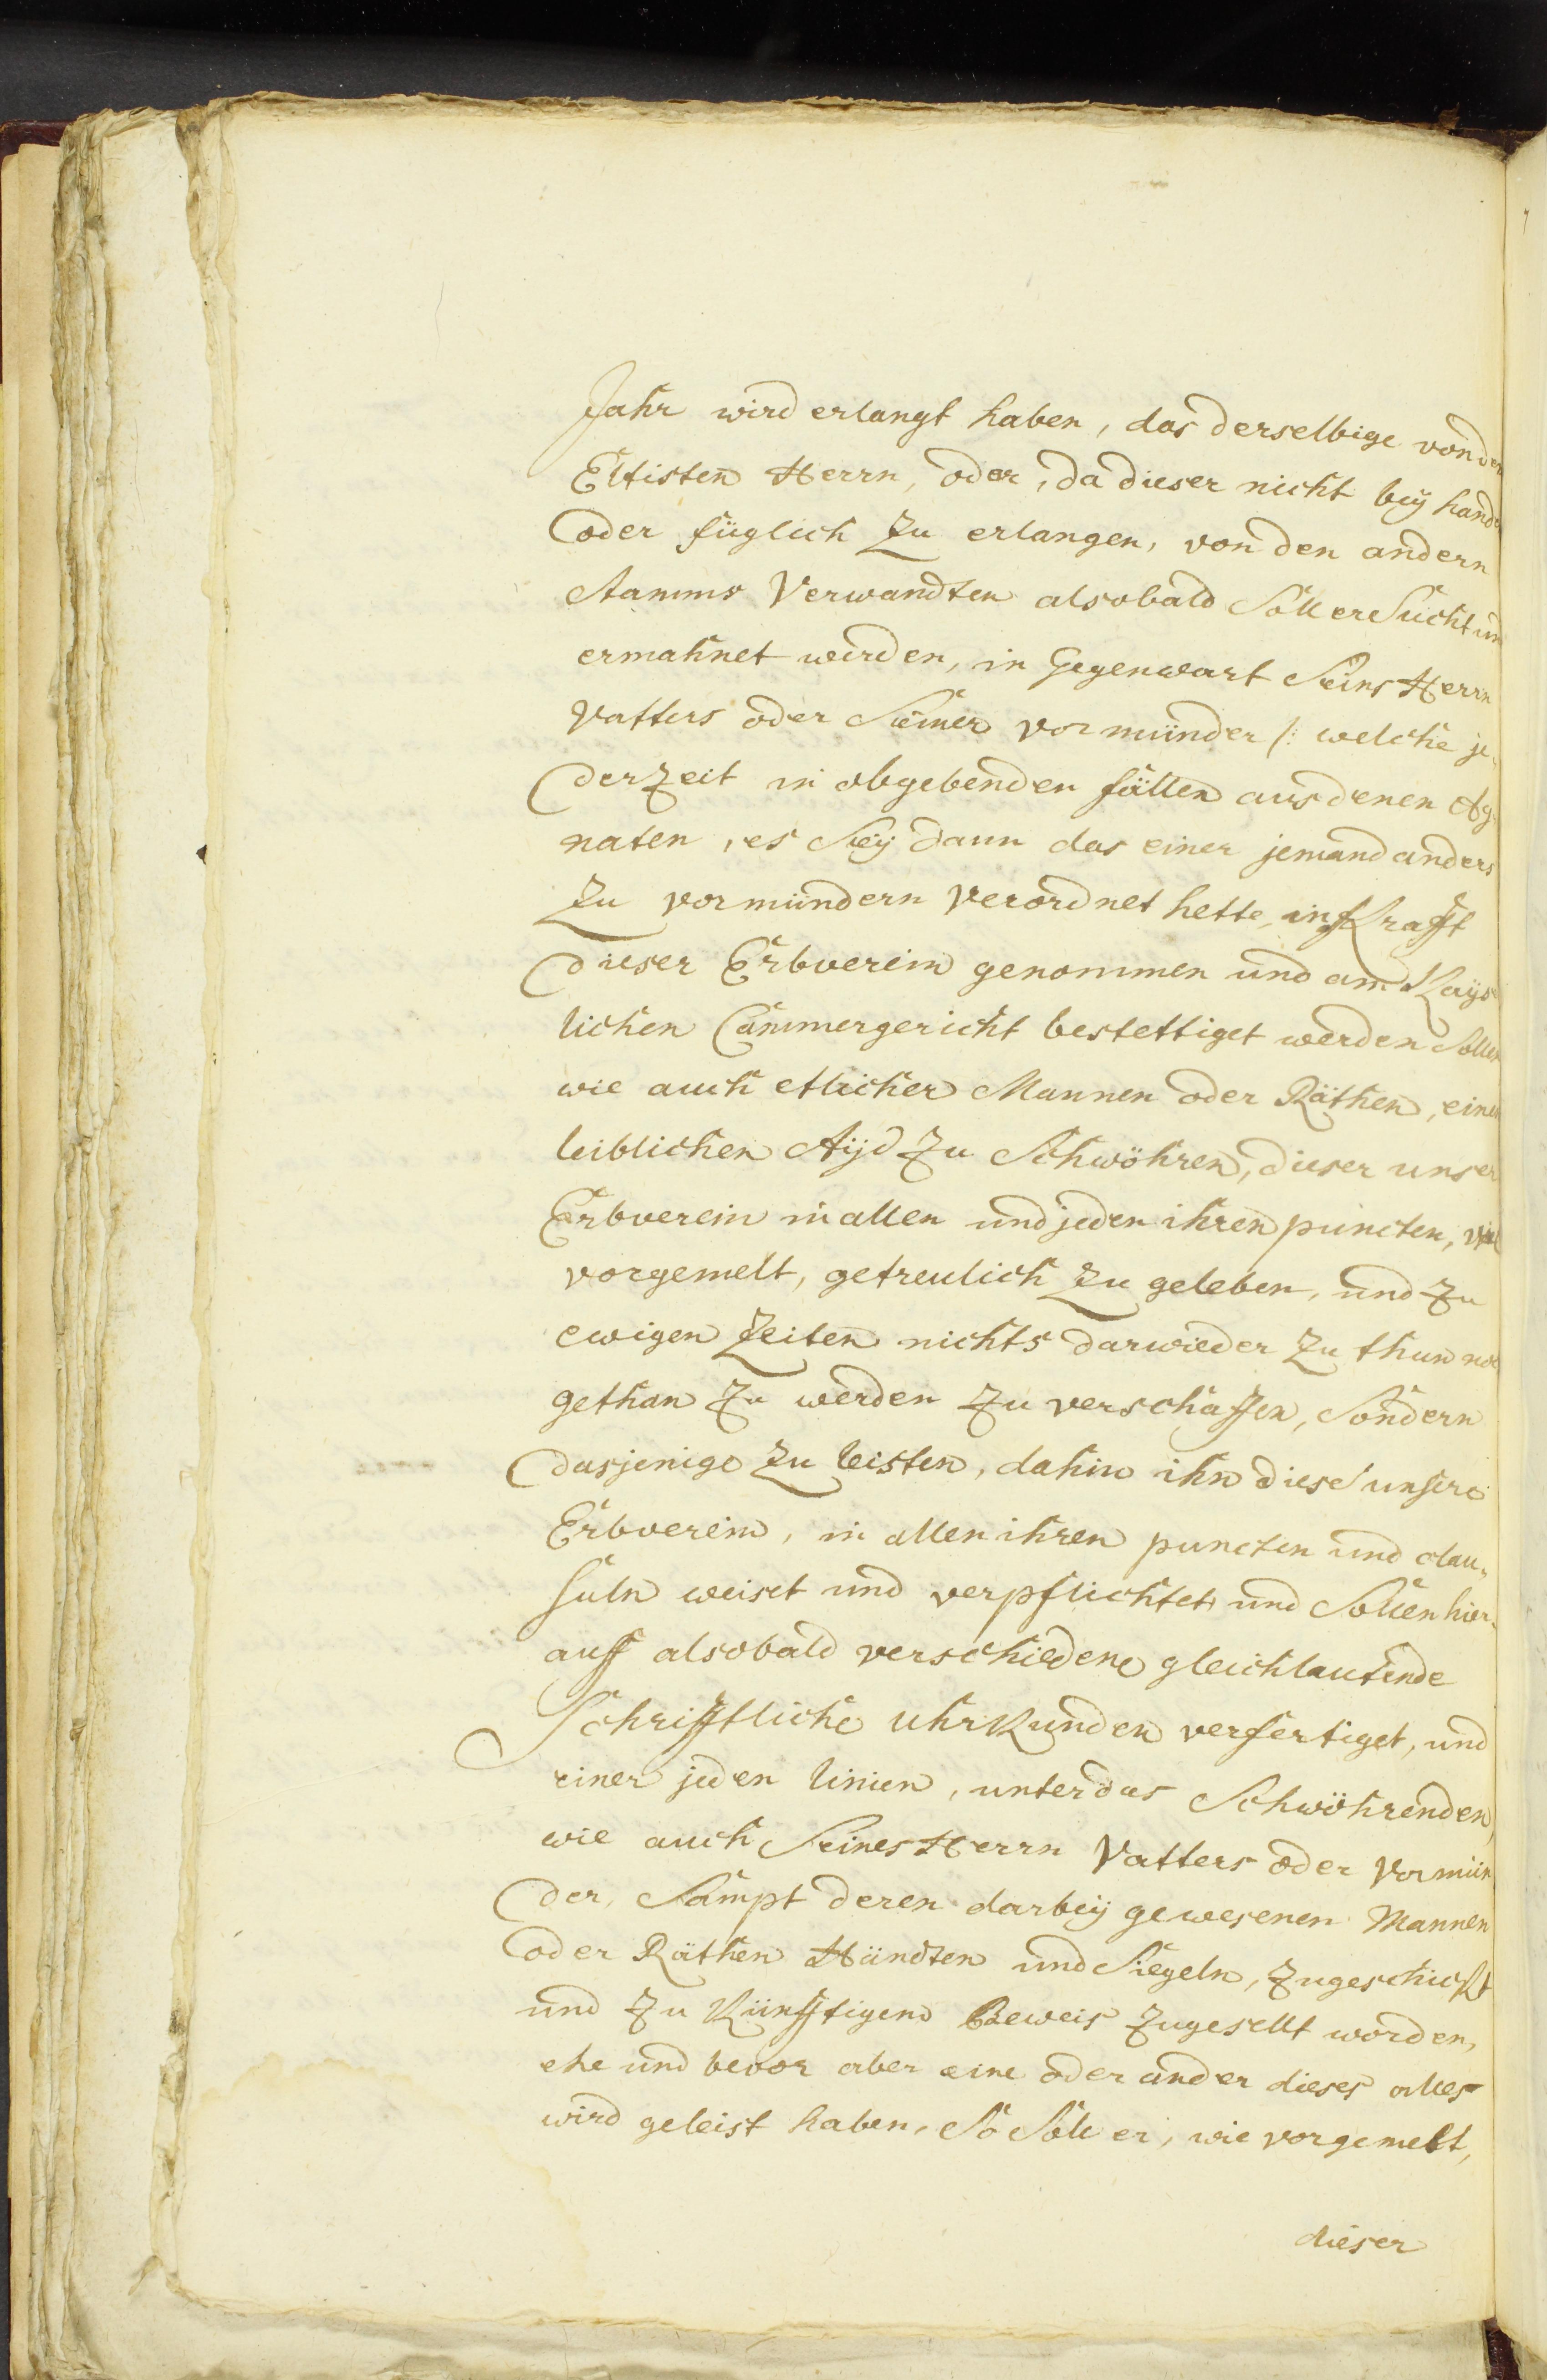 Jahr wird erlangt haben, das derselbige von den
Eltisten Herrn, oder, da dieser nicht beÿ handt
oder füglich zu erlangen, von den andern
Stamms Verwandten alsobald Soll erSucht und
ermahnet werden, in Gegenwart Seins Herrn
Vatters oder Seiner vormünder /: welche je,
derzeit in obgebenden fällen aus denen Ag,
naten, es Seÿ dann das einer jemand anders
zu vormündern verordnet hette, in Krafft
dieser Erbverein genommen und am Kaÿs
lichen Cammergericht bestettiget werden Sollen
wie auch etlicher Mannen oder Räthen, einen
leiblichen Aÿd zu Schwöhren, dieser unser
Erbverein in allen und jeden ihren puncten, wie
vorgemelt, getreulich zu geleben, und zu
ewigen Zeiten nichts darwieder zu thun noch
gethan zu werden zu verschaffen, Sondern
dasjenige zu leisten, dahin ihn diese unsere
Erbverein, in allen ihren puncten und clau,
suln weiset und verpflichtet und Sollen hier,
auff alsobald verschiedene gleichlautende
Schrifftliche Uhrkunden verfertiget, und
einer jeden linien, unter des Schwöhrenden,
wie auch Seines Herrn Vatters oder Vormün
der, Sampt deren darbeÿ gewesenen Mannen
oder Räthen Händten und Siegeln, zugeschickt
und zu Künfftigend Beweis zugesellt worden,
ehe und bevor aber eine oder ander dieses alles
wird geleist haben, So Solle er, wie vorgemelt,
dieser